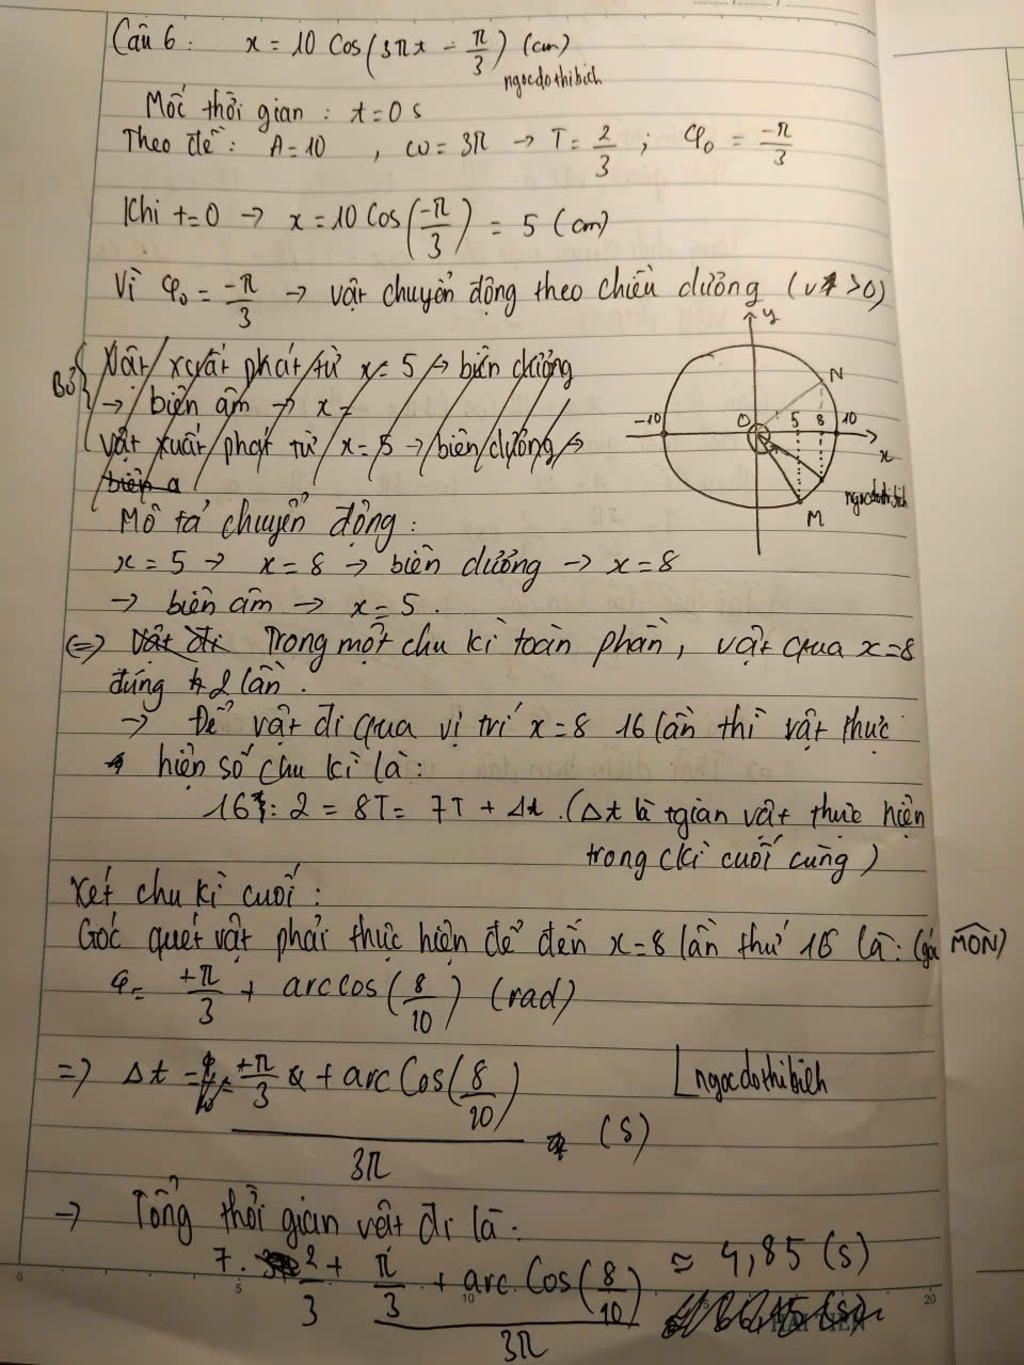 Câu 6: x = 10 Cos(3πt - π/3) (cm)
ngocdothibich
Mốc thời gian : t = 0 s
Theo đề: A = 10 , ω = 3π → T = 2/3 ; φ₀ = -π/3
Khi t = 0 → x = 10 Cos(-π/3) = 5 (cm)
Vì φ₀ = -π/3 → vật chuyển động theo chiều dương (v > 0)
Bỏ
Vật xuất phát từ x = 5 → biên dương
→ biên âm → x =
Vật xuất phát từ x = 5 → biên dương →
biên a
y
N
-10 O 5 8 10
x
ngocdothibich
M
Mô tả chuyển động :
x = 5 → x = 8 → biên dương → x = 8
→ biên âm → x = 5 .
(=) Vật đi Trong một chu kì toàn phần, vật qua x = 8
đúng 2 lần .
→ Để vật đi qua vị trí x = 8 16 lần thì vật thực
hiện số chu kì là :
16 : 2 = 8T = 7T + Δt . (Δt là tgian vật thực hiện
trong ckì cuối cùng)
Xét chu kì cuối :
Góc quét vật phải thực hiện để đến x = 8 lần thứ 16 là : (góc MON)
φ = +π/3 + arccos(8/10) (rad)
=> Δt = (+π/3 + arc Cos(8/10)) / 3π (s)
ngocdothibich
→ Tổng thời gian vật đi là :
7 . 2/3 + (π/3 + arc Cos(8/10)) / 3π ≈ 4,85 (s)
0 5 10 15 20
HẢI TIẾN